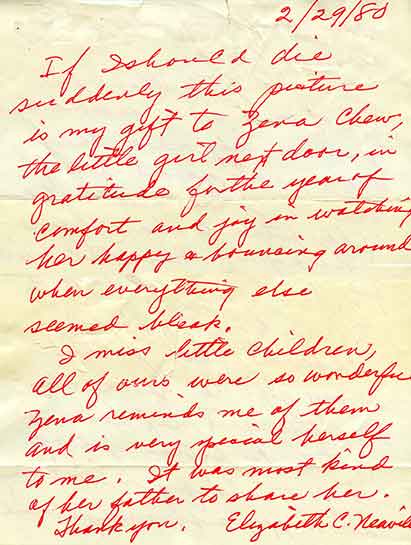 2/29/80
If I should die
suddenly this picture
is my gift to Zena Chew,
the little girl next door, in
gratitude for the year of
comfort and joy in watching
her happy & bouncing around
when everything else
seemed bleak.
I miss little children,
all of ours were so wonderful
Zena reminds me of them
and is very special herself
to me. It was most kind
of her father to share her.
Thank you. Elizabeth C.